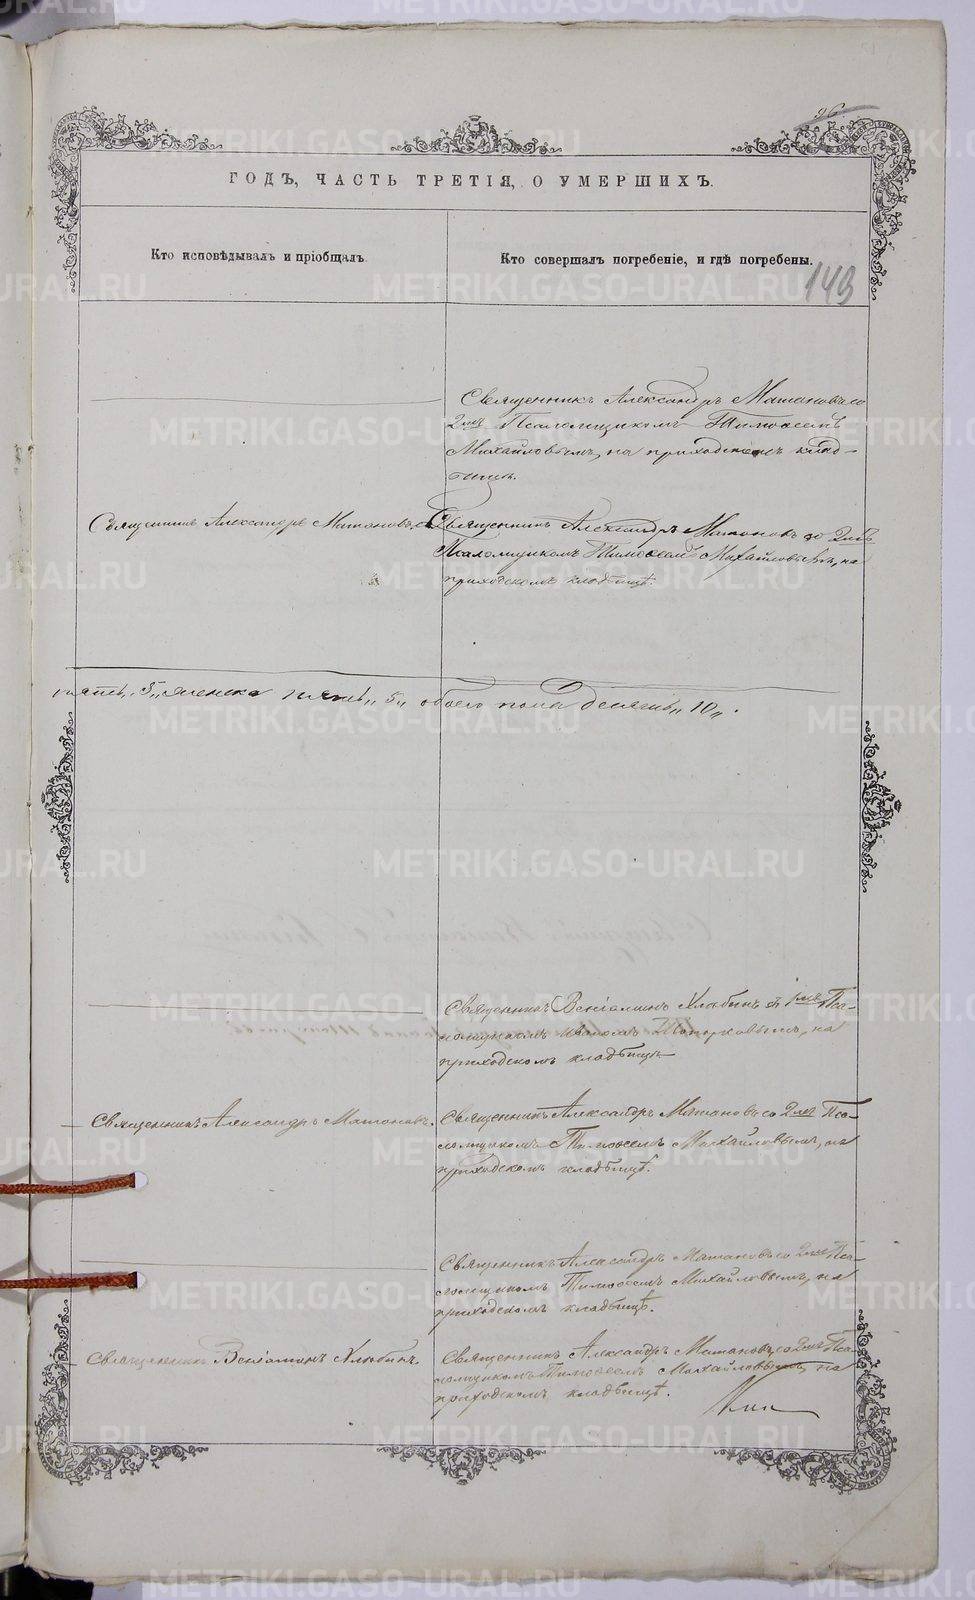 96
ГОДЪ, ЧАСТЬ ТРЕТІЯ, О УМЕРШИХЪ.
Кто исповѣдывалъ и пріобщалъ.
Кто совершалъ погребеніе, и гдѣ погребены.
149
Священникъ Александръ со
2мъ Псаломщикомъ Тимоѳеемъ
Михайловымъ, на приходскомъ клад-
бищѣ.
Священникъ Александръ
Священникъ Александръ со 2мъ
Псаломщикомъ Тимоѳеемъ Михайловымъ, на
приходскомъ кладбищѣ.
пять „5„ женска пять „5„ обоего пола десять „10„.
Священникъ Веніаминъ съ 1мъ Пса-
ломщикомъ на
приходскомъ кладбищѣ
Священникъ Александръ
Священникъ Александръ со 2мъ Пса-
ломщикомъ Тимоѳеемъ Михайловымъ, на
приходскомъ кладбищѣ.
Священникъ Александръ со 2мъ Пса-
ломщикомъ Тимоѳеемъ Михайловымъ, на
приходскомъ кладбищѣ.
Священникъ Веніаминъ
Священникъ Александръ со 2мъ Пса-
ломщикомъ Тимоѳеемъ Михайловымъ, на
приходскомъ кладбищѣ.
METRIKI.GASO-URAL.RU